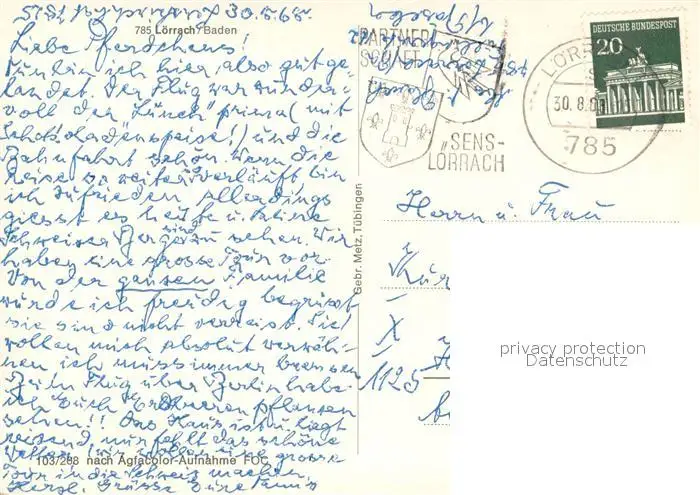 785 Lörrach/Baden
30.8.65
Liebe
Nun bin ich hier also gut ge-
landet. Der Flug war wunder-
voll der "Lunch" prima (mit
Schokoladenspeise!) und die
Bahnfahrt schön. Wenn die
Reise so weiter verläuft, bin
ich zufrieden, allerdings
giesst es heute u. keine
Schweizer Berge sind zu sehen. Wir
haben eine grosse Tour vor.
Von der ganzen Familie
wurde ich freudig begrüsst
sie sind nicht verreist. Sie
wollen mich absolut verwöh-
nen ich muss immer bremsen
Beim Flug über Berlin habe
ich Euch Erdbeeren pflanzen
sehen!! Das Haus ist u. liegt
reizend, nur fehlt das schöne
Wetter. Wir wollen eine grosse
Tour in die Schweiz machen.
Herzl. Grüsse Eure
103/268 nach Agfacolor-Aufnahme FOC
Gebr. Metz, Tübingen
PARTNER
"SENS-
LÖRRACH
30.8.
785
DEUTSCHE BUNDESPOST
20
Herrn u. Frau
X
1125
privacy protection
Datenschutz